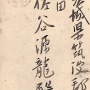 茨城県筑波郡
田
佐谷源龍殿